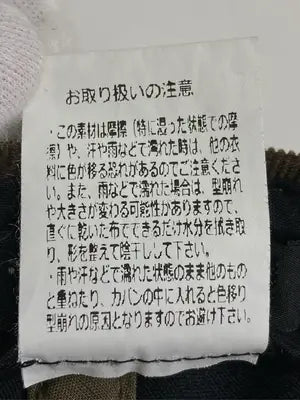 お取り扱いの注意
・この素材は摩擦(特に湿った状態での摩
擦)や、汗や雨などで濡れた時は、他の衣
料に色が移る恐れがあるのでご注意くださ
い。また、雨などで濡れた場合は、型崩れ
や大きさが変わる可能性かありますので、
直ぐに乾いた布でできるだけ水分を拭き取
り、形を整えて陰干しして下さい。
・雨や汗などで濡れた状態のまま他のもの
と重ねたり、カバンの中に入れると色移り
型崩れの原因となりますのでお避け下さい。